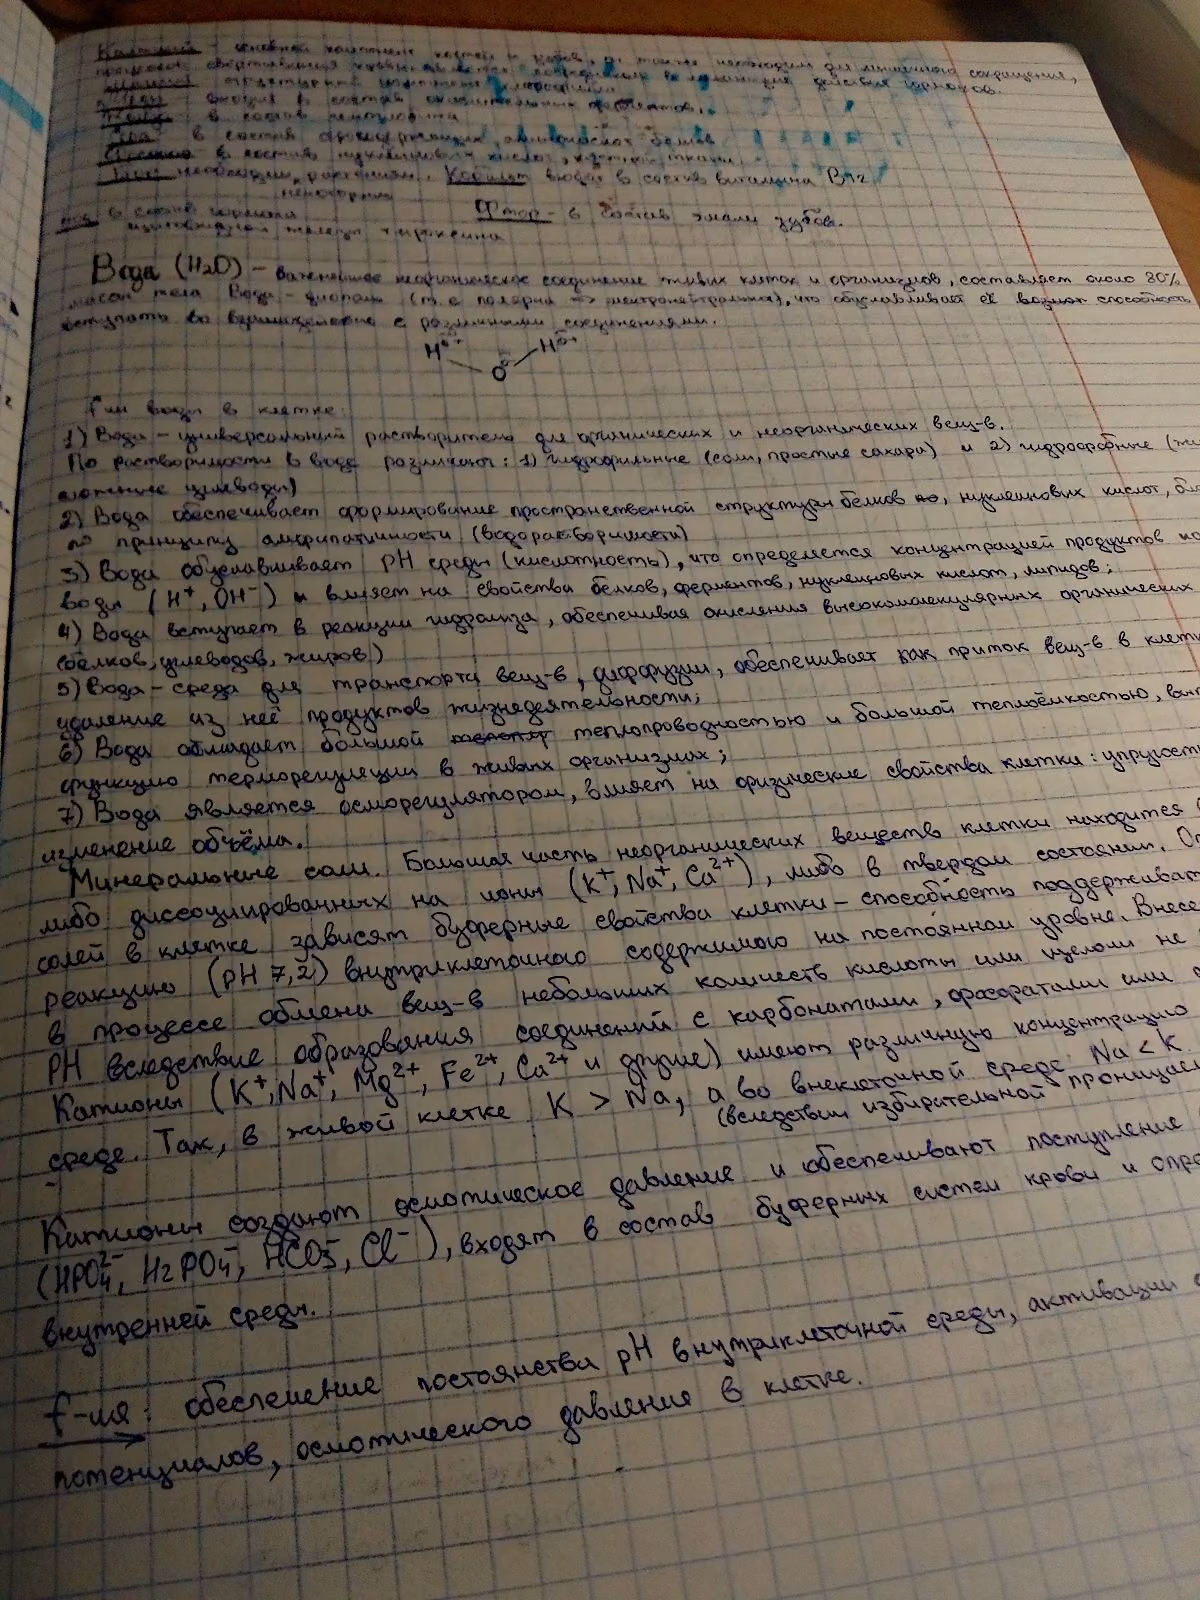 Кальций - основной компонент костей и зубов, а также необходим для мышечного сокращения,
в состав
в состав аминокислот белков
в состав нуклеиновых кислот, костной ткани
Кобальт входит в состав витамина B12
Фтор - в состав эмали зубов.
в состав гормона
щитовидной железы тироксина
Вода (H2O) - важнейшее неорганическое соединение живых клеток и организмов, составляет около 80%
массы тела Вода - диполь (т.е полярна => электронейтральна), что обуславливает её способность
вступать во взаимодействие с различными соединениями.
H δ+ H δ+
O δ-
f-ии воды в клетке:
1) Вода - универсальный растворитель для органических и неорганических вещ-в.
По растворимости в воде различают: 1) гидрофильные (соли, простые сахара) и 2) гидрофобные
сложные углеводы)
2) Вода обеспечивает формирование пространственной структуры белков, нуклеиновых кислот,
по принципу амфипатичности (водорастворимости)
3) Вода обуславливает PH среды (кислотность), что определяется концентрацией продуктов
воды (H⁺, OH⁻) и влияет на свойства белков, ферментов, нуклеиновых кислот, липидов;
4) Вода вступает в реакции гидролиза, обеспечивая окисления высокомолекулярных органических
(белков, углеводов, жиров)
5) Вода - среда для транспорта вещ-в, диффузии, обеспечивает как приток вещ-в в клетк
удаление из неё продуктов жизнедеятельности;
6) Вода обладает большой теплопроводностью и большой теплоёмкостью, вып
функцию терморегуляции в живых организмах;
7) Вода является осморегулятором, влияет на физические свойства клетки: упругость
изменение объёма.
Минеральные соли. Большая часть неорганических веществ клетки находится
либо диссоциированных на ионы (K⁺, Na⁺, Ca²⁺), либо в твердом состоянии. От
солей в клетке зависят буферные свойства клетки - способность поддерживат
реакцию (pH 7,2) внутриклеточного содержимого на постоянном уровне. Внесе
в процессе обмена вещ-в небольших количеств кислоты или щелочи не
PH вследствие образования соединений с карбонатами, фосфатами или
Катионы (K⁺, Na⁺, Mg²⁺, Fe²⁺, Ca²⁺ и другие) имеют различную концентрацию
среде. Так, в живой клетке K > Na, а во внеклеточной среде Na < K.
(вследствии избирательной проницаем
Катионы создают осмотическое давление и обеспечивают поступление
(HPO₄²⁻, H₂PO₄⁻, HCO₃⁻, Cl⁻), входят в состав буферных систем крови и опре
внутренней среды.
f-ия: обеспечение постоянства pH внутриклеточной среды, активации
потенциалов, осмотического давления в клетке.